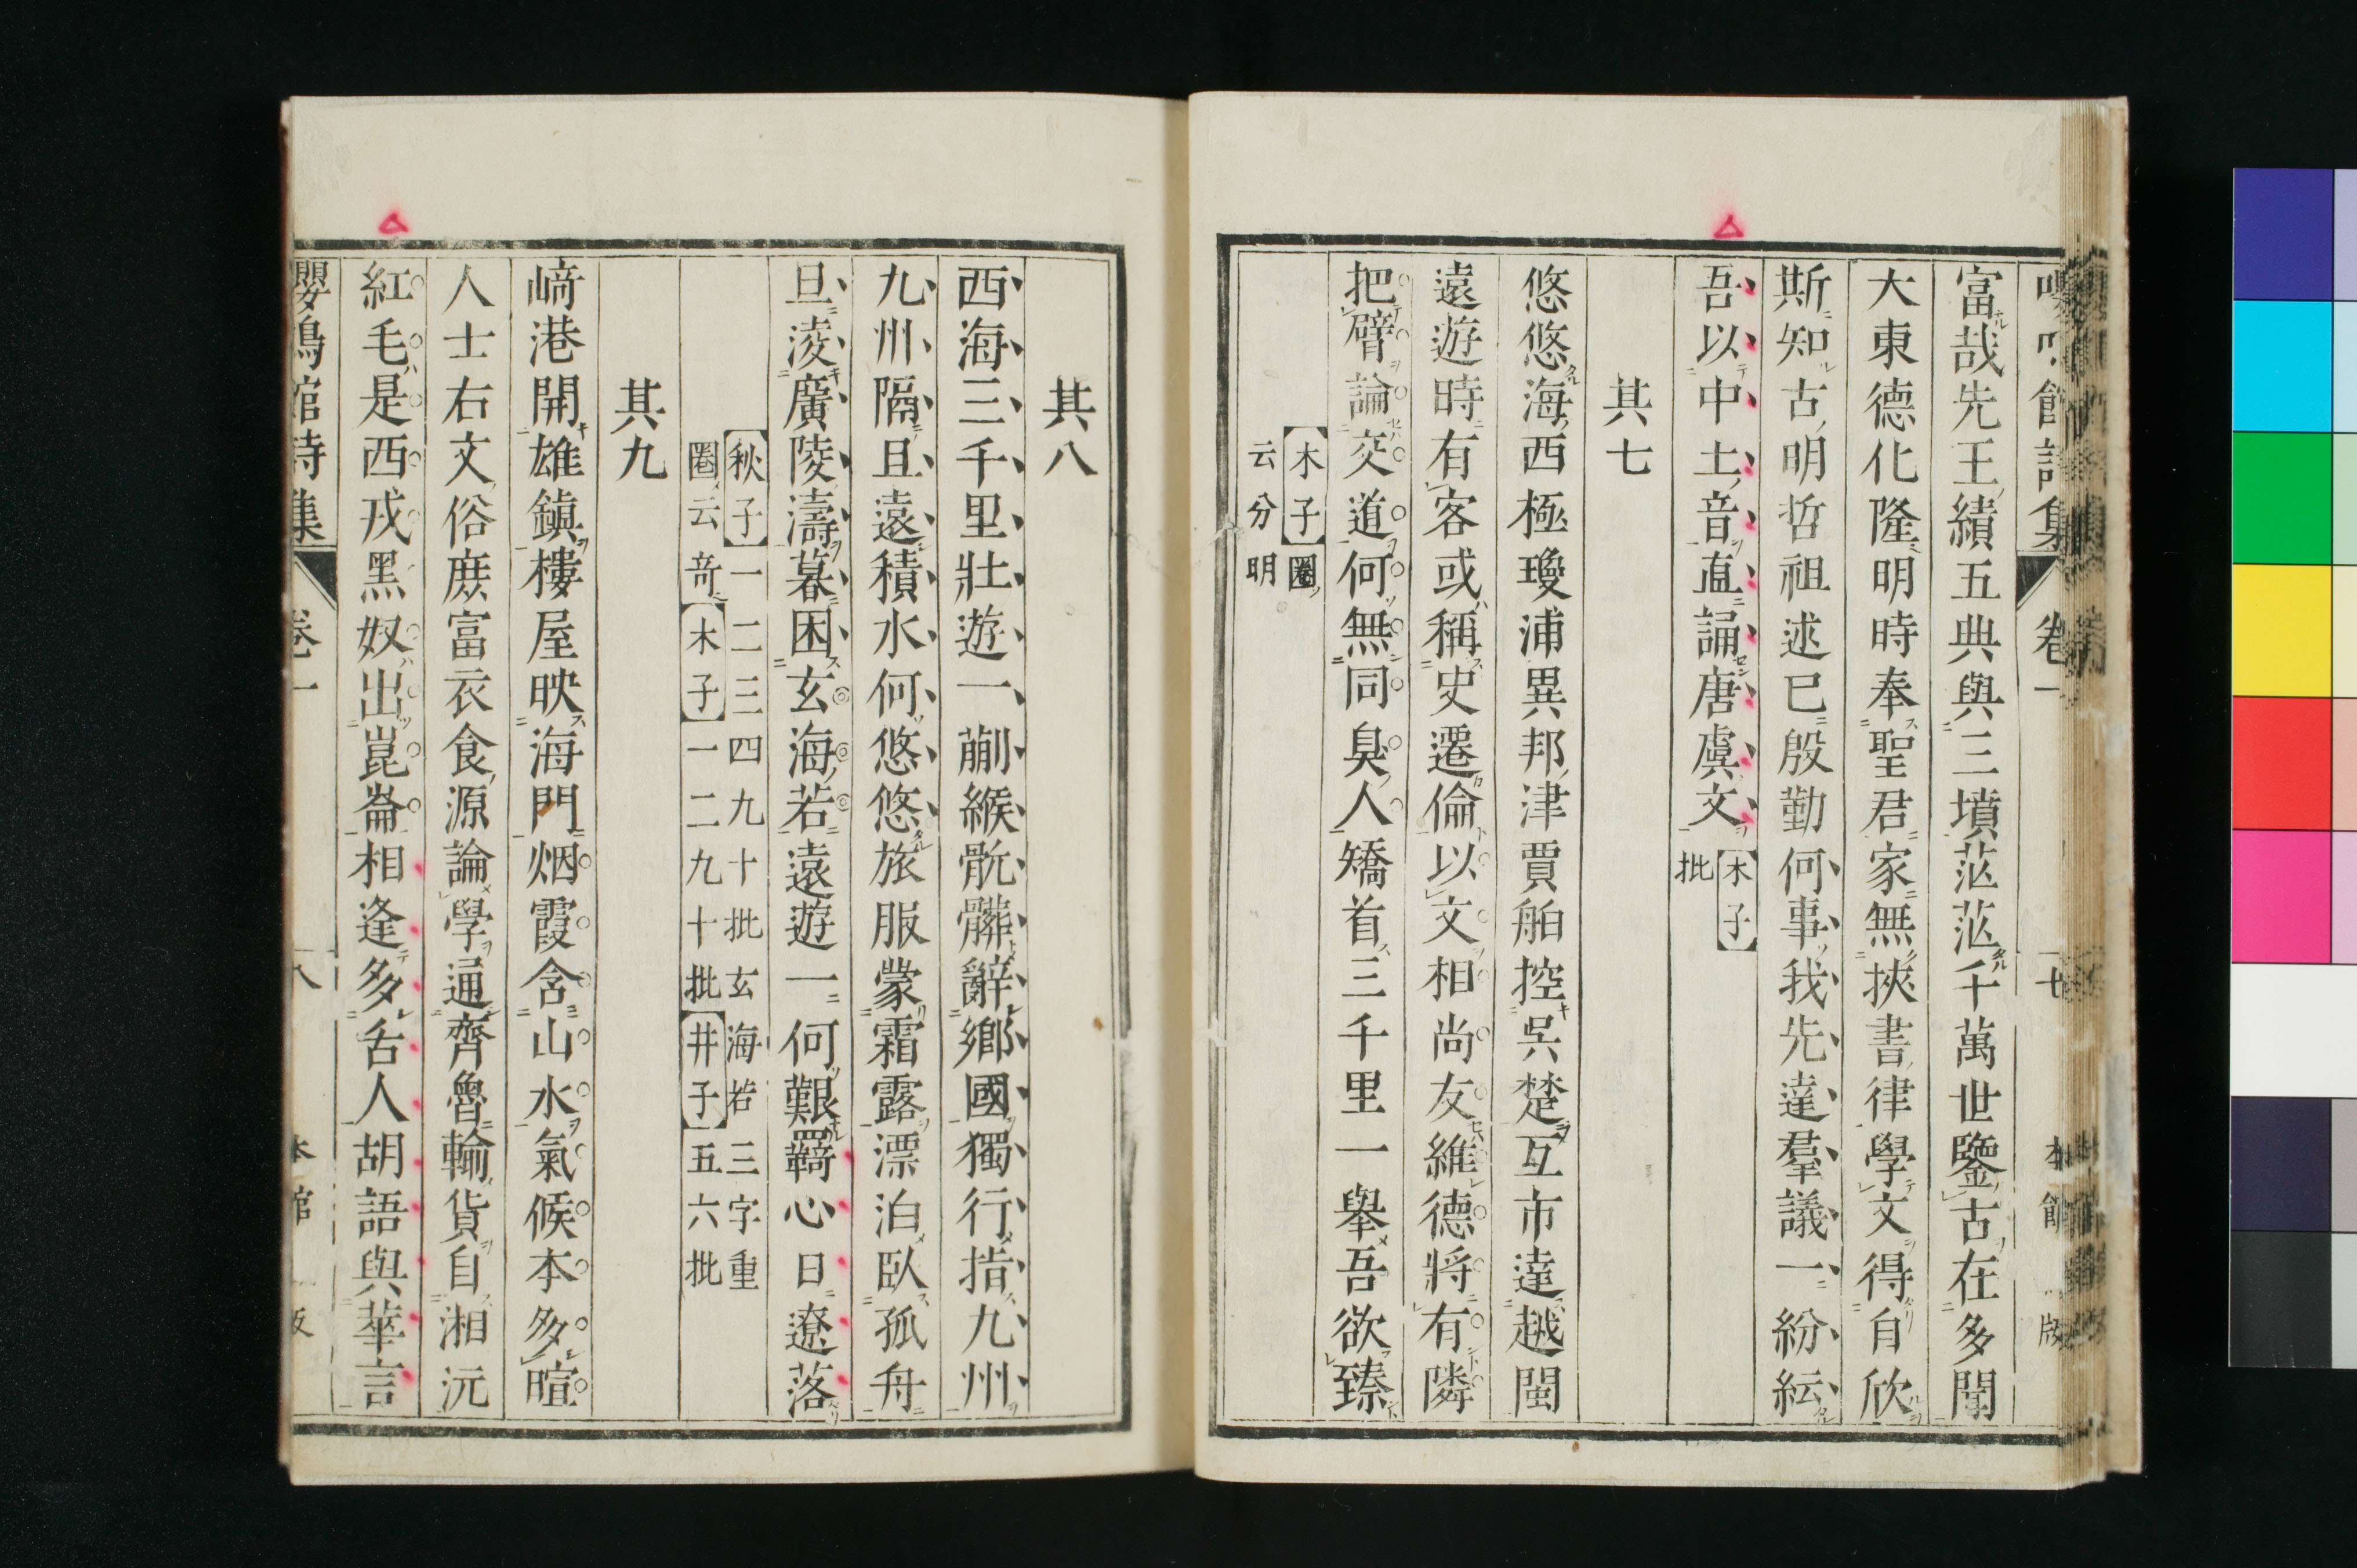 嚶鳴館詩集 卷一 七 本館版
富哉先王績五典與三墳茫茫千萬世鑒古在多聞
大東德化隆明時奉聖君家無挾書律學文得自欣
斯知古明哲祖述已殷勤何事我先達羣議一紛紜
吾以中土音直誦唐虞文【木子】
批
其七
悠悠海西極瓊浦異邦津賈舶控吳楚互市達越閩
遠遊時有客或稱史遷倫以文相尚友維德將有隣
把臂論交道何無同臭人矯首三千里一舉吾欲臻
【木子】圈
云分明
其八
西海三千里壯遊一蒯緱骯髒辭鄉國獨行指九州
九州隔且遠積水何悠悠旅服蒙霜露漂泊臥孤舟
旦淩廣陵濤暮困玄海若遠遊一何艱羈心日遼落
【秋子】一二三四九十批玄海若三字重
圈云奇【木子】一二九十批【井子】五六批
其九
﨑港開雄鎭樓屋映海門烟霞含山水氣候本多暄
人士右文俗庶富衣食源論學通齊魯輸貨自湘沅
紅毛是西戎黑奴出崑崙相逢多舌人胡語與華言
嚶鳴館詩集 卷一 八 本館版